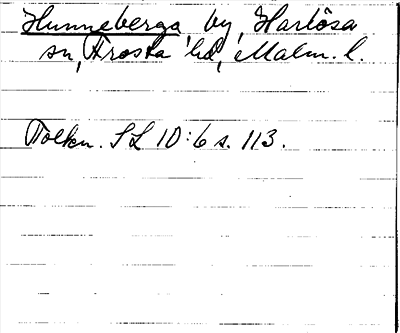 Hunneberga by, Harlösa
sn, Frosta hd, Malm. l.
Tolkn. SL 10:6 s. 113.